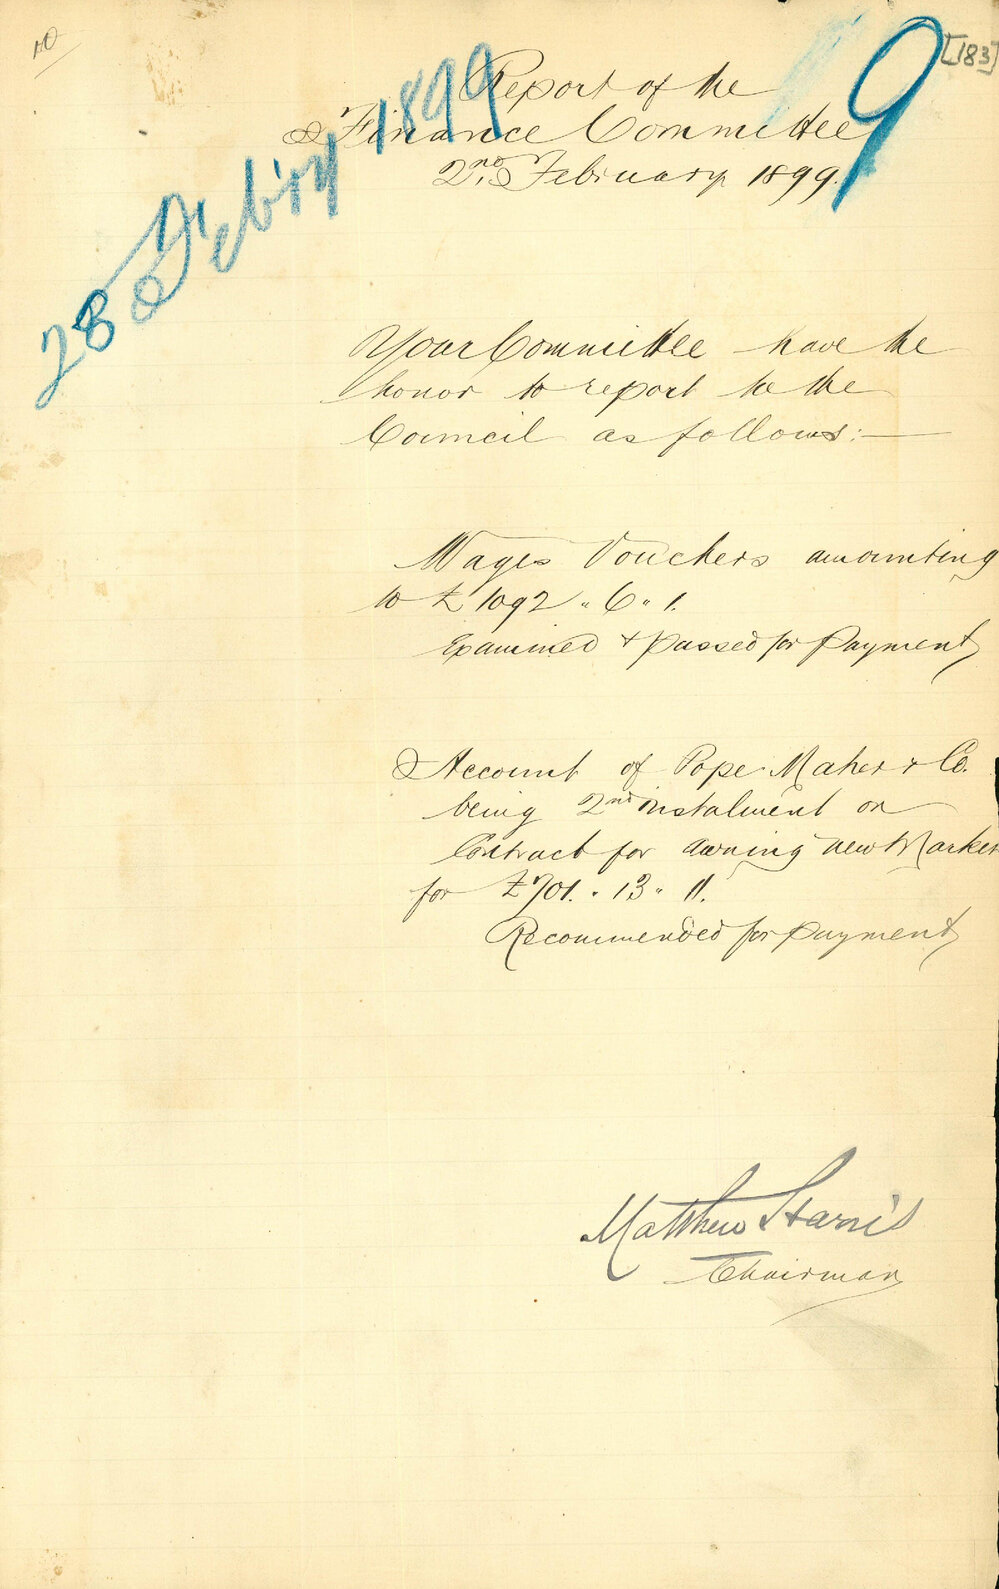 10
[183]
9
28 Feb'ry 1899
Report of the
Finance Committee
2nd February 1899.
Your Committee have the
honor to report to the
Council as follows:—
Wages Vouchers amounting
to £1092 " 6 " 1.
Examined + passed for payment
Account of Pope Maher + Co.
being 2nd instalment on
Contract for awning new Market
for £701. " 13 " 11.
Recommended for payment
Matthew Harris
Chairman